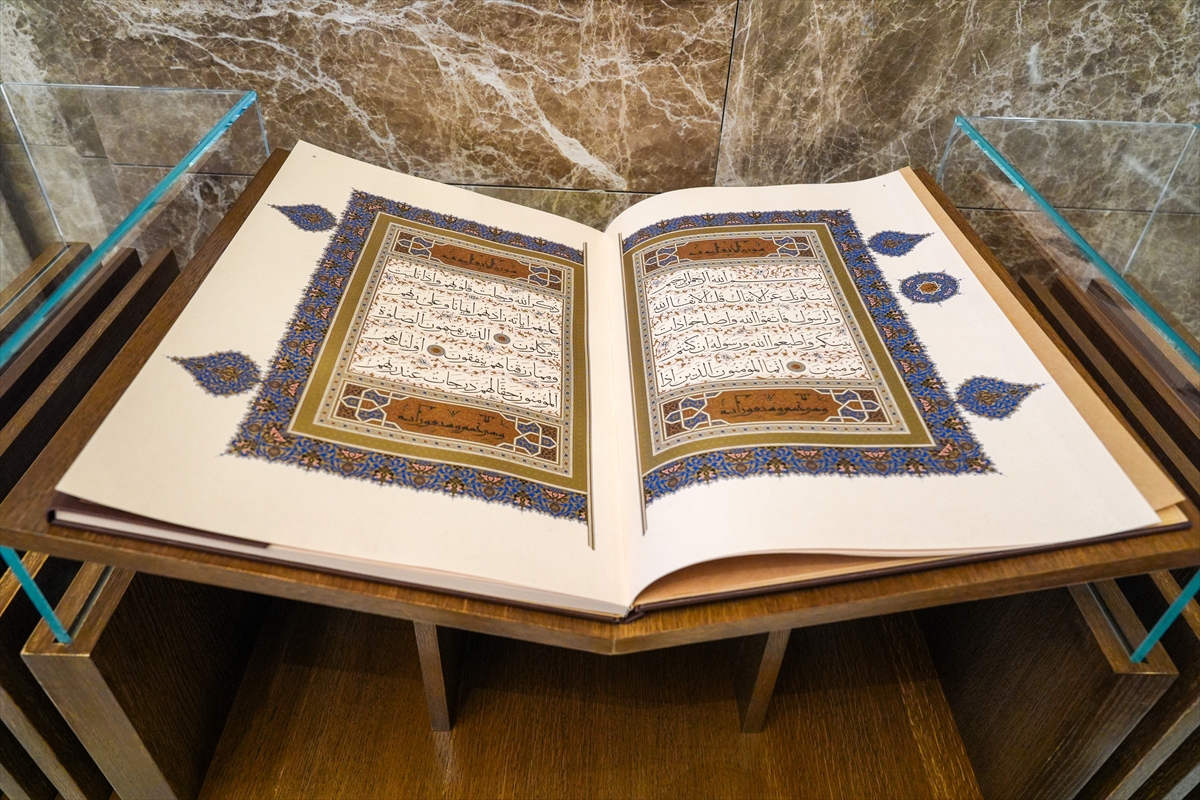 بسم الله الرحمن الرحيم
يسئلونك عن الانفال قل الانفال لله
والرسول فاتقوا الله واصلحوا ذات
بينكم واطيعوا الله ورسوله ان كنتم
مومنين انما المومنون الذين اذا
ذكر الله وجلت قلوبهم واذا تليت
عليهم اياته زادتهم ايمانا وعلى ربهم
يتوكلون الذين يقيمون الصلوة
ومما رزقناهم ينفقون اولئك هم
المومنون حقا لهم درجات عند ربهم